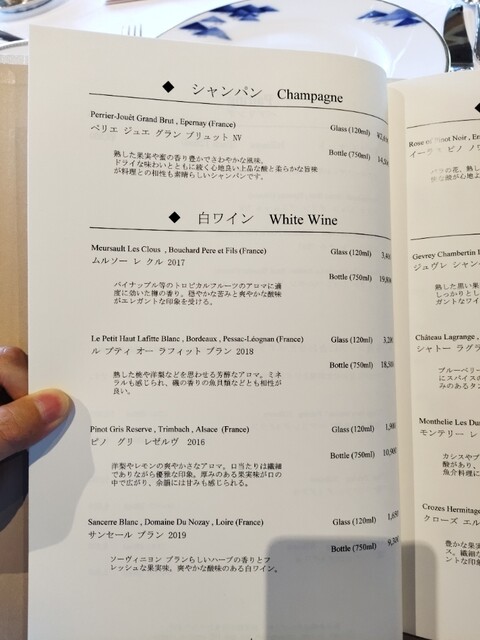 ◆ シャンパン Champagne
Perrier-Jouët Grand Brut , Epernay (France)
ペリエ ジュエ グラン ブリュット NV
Glass (120ml)
熟した果実や蜜の香り豊かでさわやかな風味。
ドライな味わいとともに続く心地良い上品な酸と柔らかな旨味
が料理との相性も素晴らしいシャンパンです。
Bottle (750ml)
◆ 白ワイン White Wine
Meursault Les Clous , Bouchard Pere et Fils (France)
Glass (120ml)
ムルソー レ クル 2017
Bottle (750ml)
パイナップル等のトロピカルフルーツのアロマに適
度に効いた樽の香り。穏やかな苦みと爽やかな酸味
がエレガントな印象を受ける。
Le Petit Haut Lafitte Blanc , Bordeaux , Pessac-Léognan (France)
Glass (120ml)
ル プティ オー ラフィット ブラン 2018
Bottle (750ml)
熟した桃や洋梨などを思わせる芳醇なアロマ。ミネ
ラルも感じられ、磯の香りの魚貝類などとも相性が
良い。
Pinot Gris Reserve , Trimbach , Alsace (France)
Glass (120ml) 1,900
ピノ グリ レゼルヴ 2016
Bottle (750ml) 10,900
洋梨やレモンの爽やかさなアロマ。口当たりは繊細
でありながら優雅な印象。厚みのある果実味が口の
中で広がり、余韻には甘みも感じられる。
Sancerre Blanc , Domaine Du Nozay , Loire (France)
Glass (120ml)
サンセール ブラン 2019
Bottle (750ml)
ソーヴィニヨン ブランらしいハーブの香りとフ
レッシュな果実味。爽やかな酸味のある白ワイン。
Gevrey Chambertin
ジュヴレ シャン
Château Lagrange ,
シャトー ラグラ
ブルーベリー
にスパイスの
みのあるタン
Monthelie Les Du
モンテリー レ
カシスやブ
酸があり、
魚介料理に
Crozes Hermitage
クローズ エル
豊かな果実
ス。繊細な
ントな印象